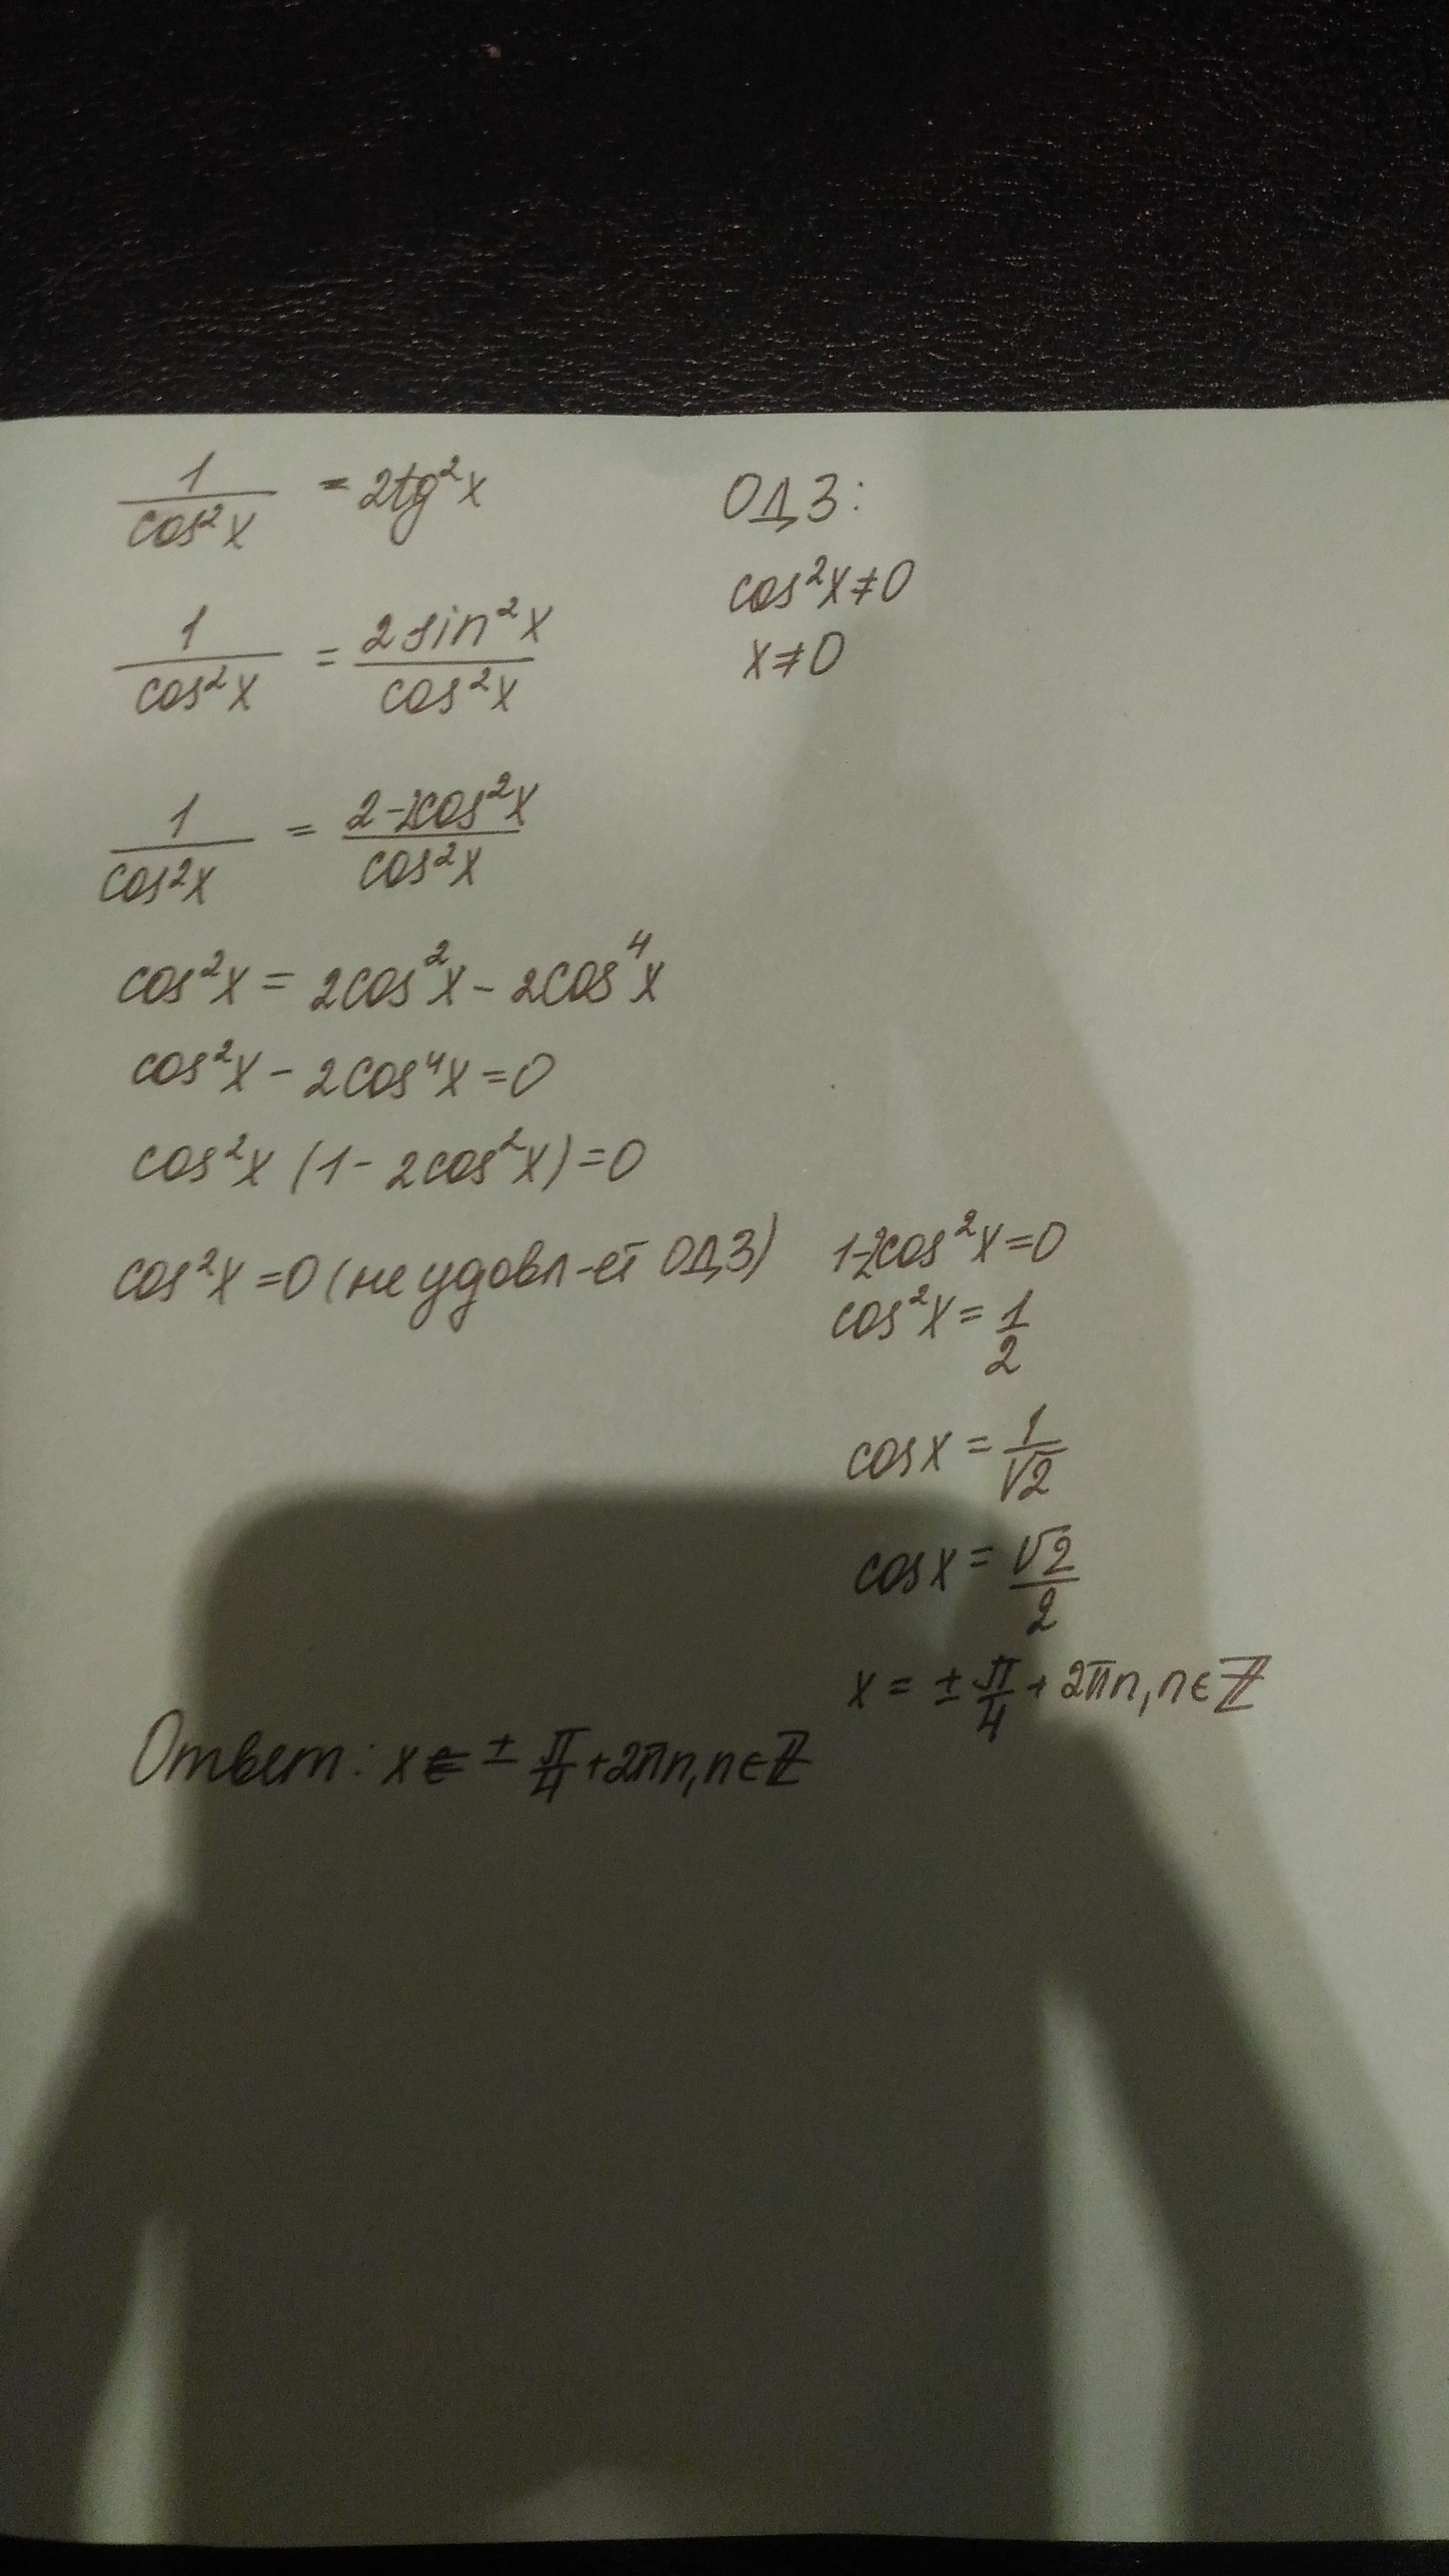 1/cos²x = 2tg²x
ОДЗ:
cos²x≠0
x≠0
1/cos²x = 2sin²x/cos²x
1/cos²x = 2-2cos²x/cos²x
cos²x = 2cos²x - 2cos⁴x
cos²x - 2cos⁴x = 0
cos²x (1 - 2cos²x) = 0
cos²x = 0 (не удовл-ет ОДЗ)
1-2cos²x=0
cos²x = 1/2
cosx = 1/√2
cosx = √2/2
x = ± π/4 + 2πn, n∈ℤ
Ответ: x = ± π/4 + 2πn, n∈ℤ